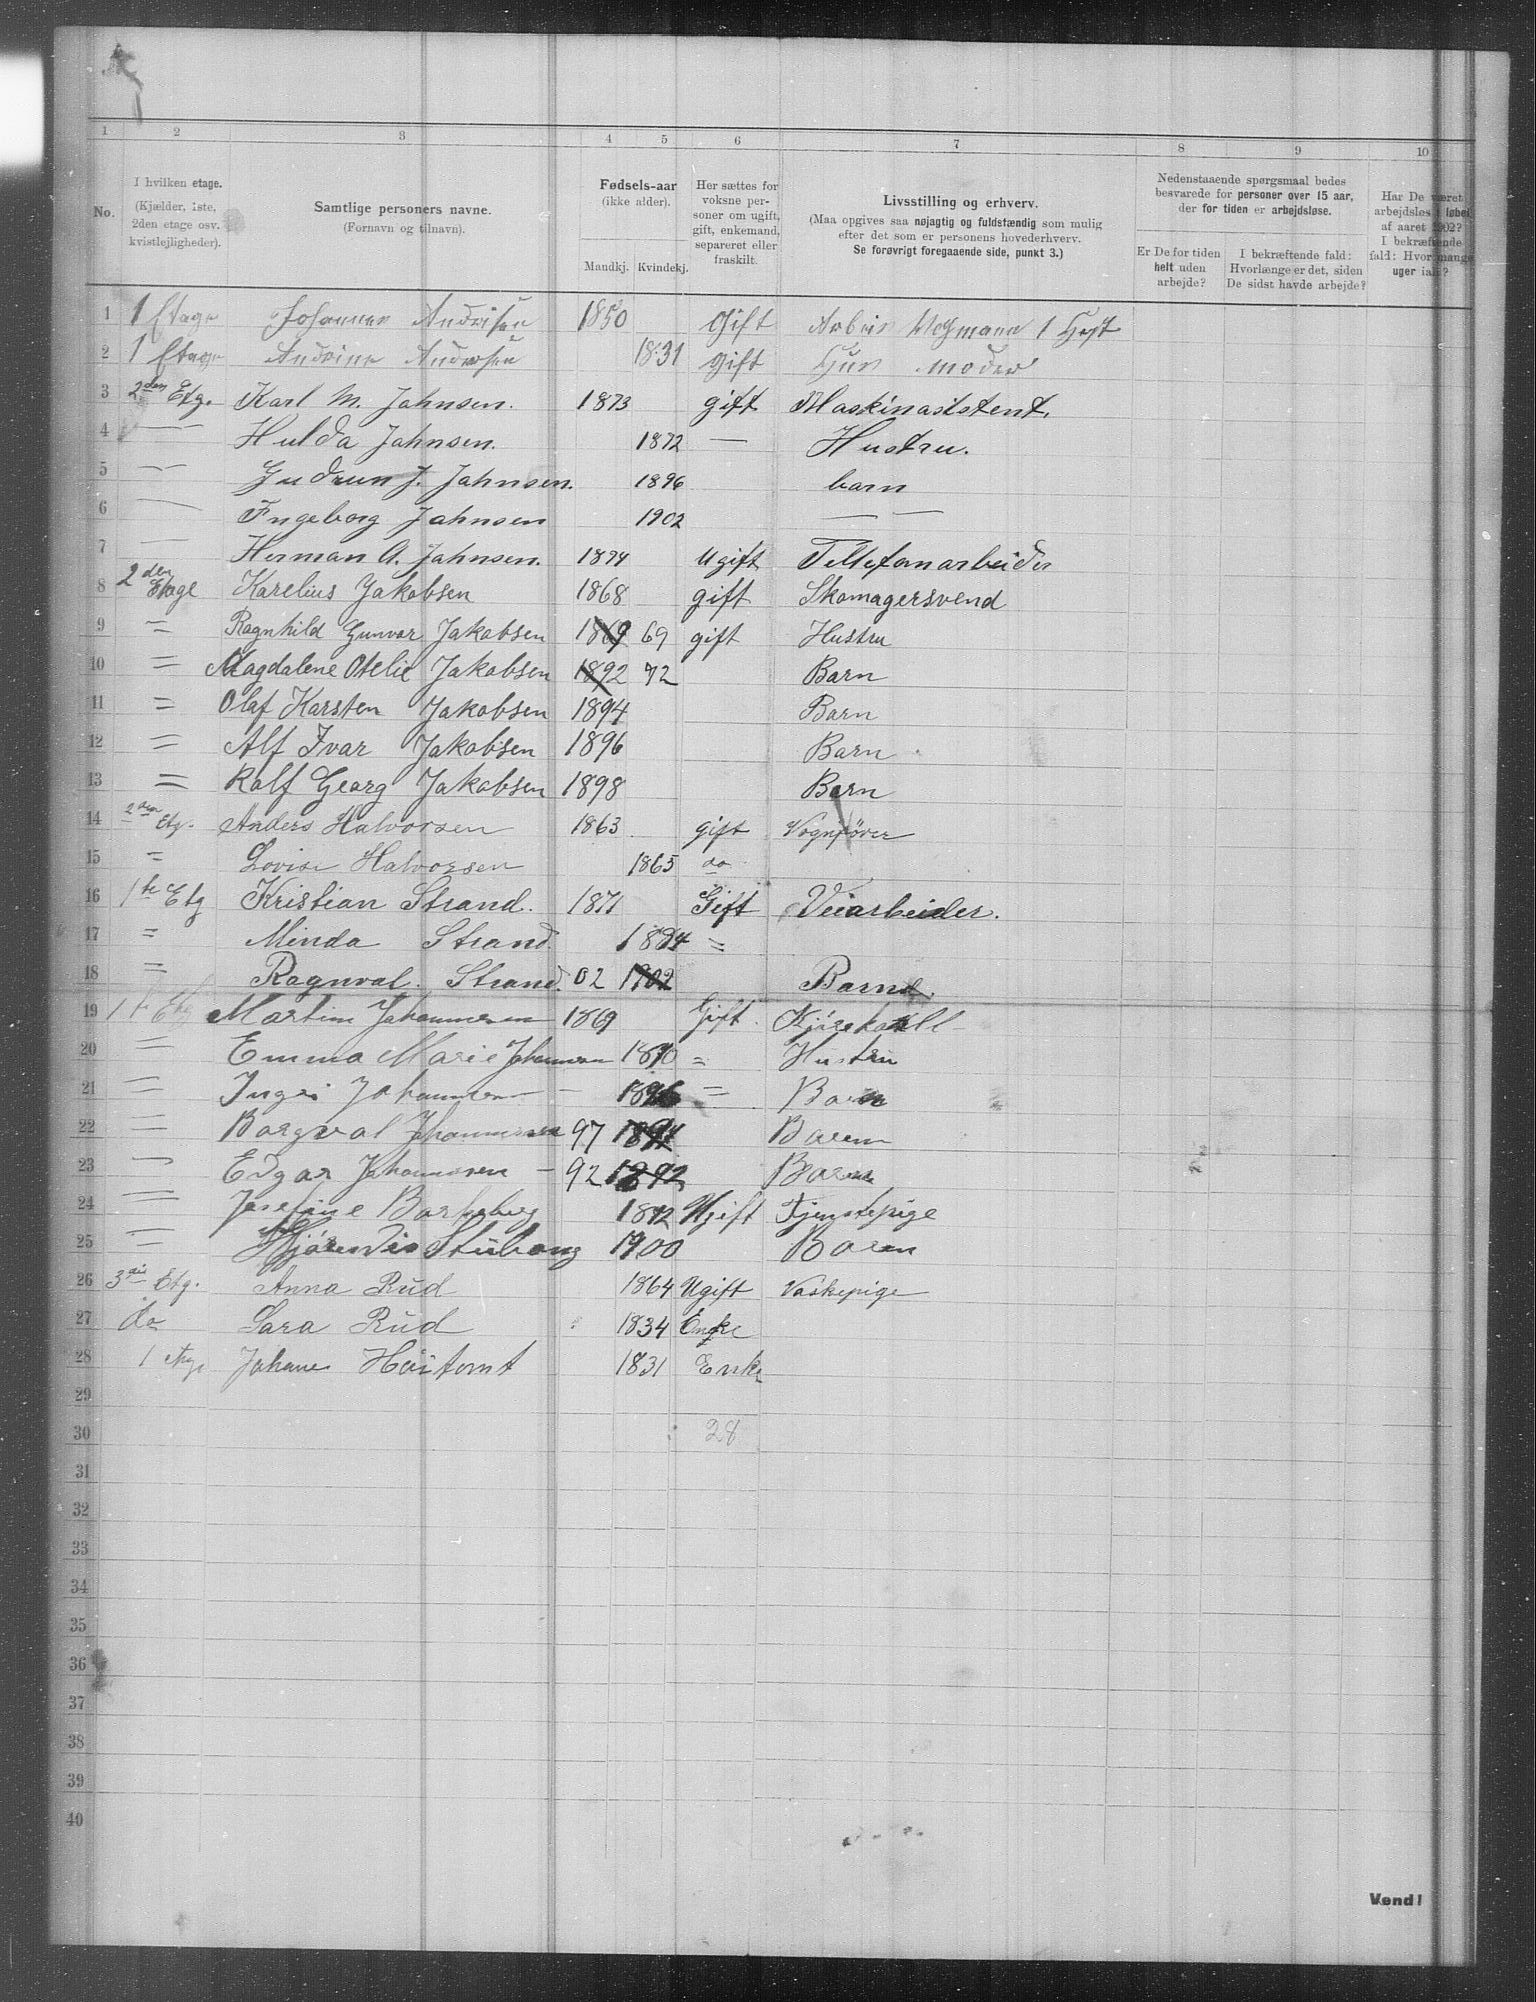 1 2 3 4 5 6 7 8 9 10
No.
I hvilken etage.
(Kjælder, 1ste,
2den etage osv.
kvistlejligheder).
Samtlige personers navne.
(Fornavn og tilnavn).
Fødsels-aar
(ikke alder).
Mandkj. Kvindekj.
Her sættes for
voksne per-
soner om ugift,
gift, enkemand,
separeret eller
fraskilt.
Livsstilling og erhverv.
(Maa opgives saa nøjagtig og fuldstændig som mulig
efter det som er personens hovederhverv.
Se forøvrigt foregaaende side, punkt 3.)
Nedenstaaende spørgsmaal bedes
besvarede for personer over 15 aar,
der for tiden er arbejdsløse.
Er De for tiden
helt uden
arbejde?
I bekræftende fald:
Hvorlænge er det, siden
De sidst havde arbejde?
Har De været
arbejdsløs i løbet
af aaret 1902?
I bekræftende
fald: Hvor mange
uger ialt?
1 1 Etage Johannes Andersen 1850 Gift 1 Hest
2 1 Etage Andrine Andersen 1831 gift Huns moder
3 2den Etg. Karl M. Jahnsen. 1873 gift Maskinasistent.
4 — Hulda Jahnsen. 1872 — Hustru.
5 — Gudrun J. Jahnsen. 1896 barn
6 — Ingeborg Jahnsen 1902 — —
7 — Herman A. Jahnsen. 1874 Ugift Tellefonarbeider
8 2den Etage Karelius Jakobsen 1868 gift Skomagersvend
9 = Ragnhild Gunvor Jakobsen 1869 69 gift Hustru
10 = Magdalene Otelie Jakobsen 1892 92 Barn
11 = Olaf Karsten Jakobsen 1894 Barn
12 = Alf Ivar Jakobsen 1896 Barn
13 = Ralf Georg Jakobsen 1898 Barn
14 2den Etg. Anders Halvorsen 1863 gift Vognfører
15 = Lovise Halvorsen 1865 do
16 1ste Etg Kristian Strand. 1871 Gift Veiarbeider.
17 = Minda Strand. 1874 =
18 = Ragnval. Strand. 02 1902 Barn
19 1 Etg Martin Johannesen 1869 Gift Kjørekall
20 = Emma Marie Johannesen 1870 = Hustru
21 = Johannesen — 1896 = Barn
22 = Borgval Johannesen 97 Baren
23 = Edgar Johannesen — 92 1892 Baren
24 = Josefine 1872 Ugift Tjenstepige
25 = 1900 Baren
26 3die Etg. Anna Rud 1864 Ugift Vaskepige
27 do Sara Rud 1834 Enke
28 1 etg. Johane Høitomt 1831 Enke
29
30 28
31
32
33
34
35
36
37
38
39
40
Vend!